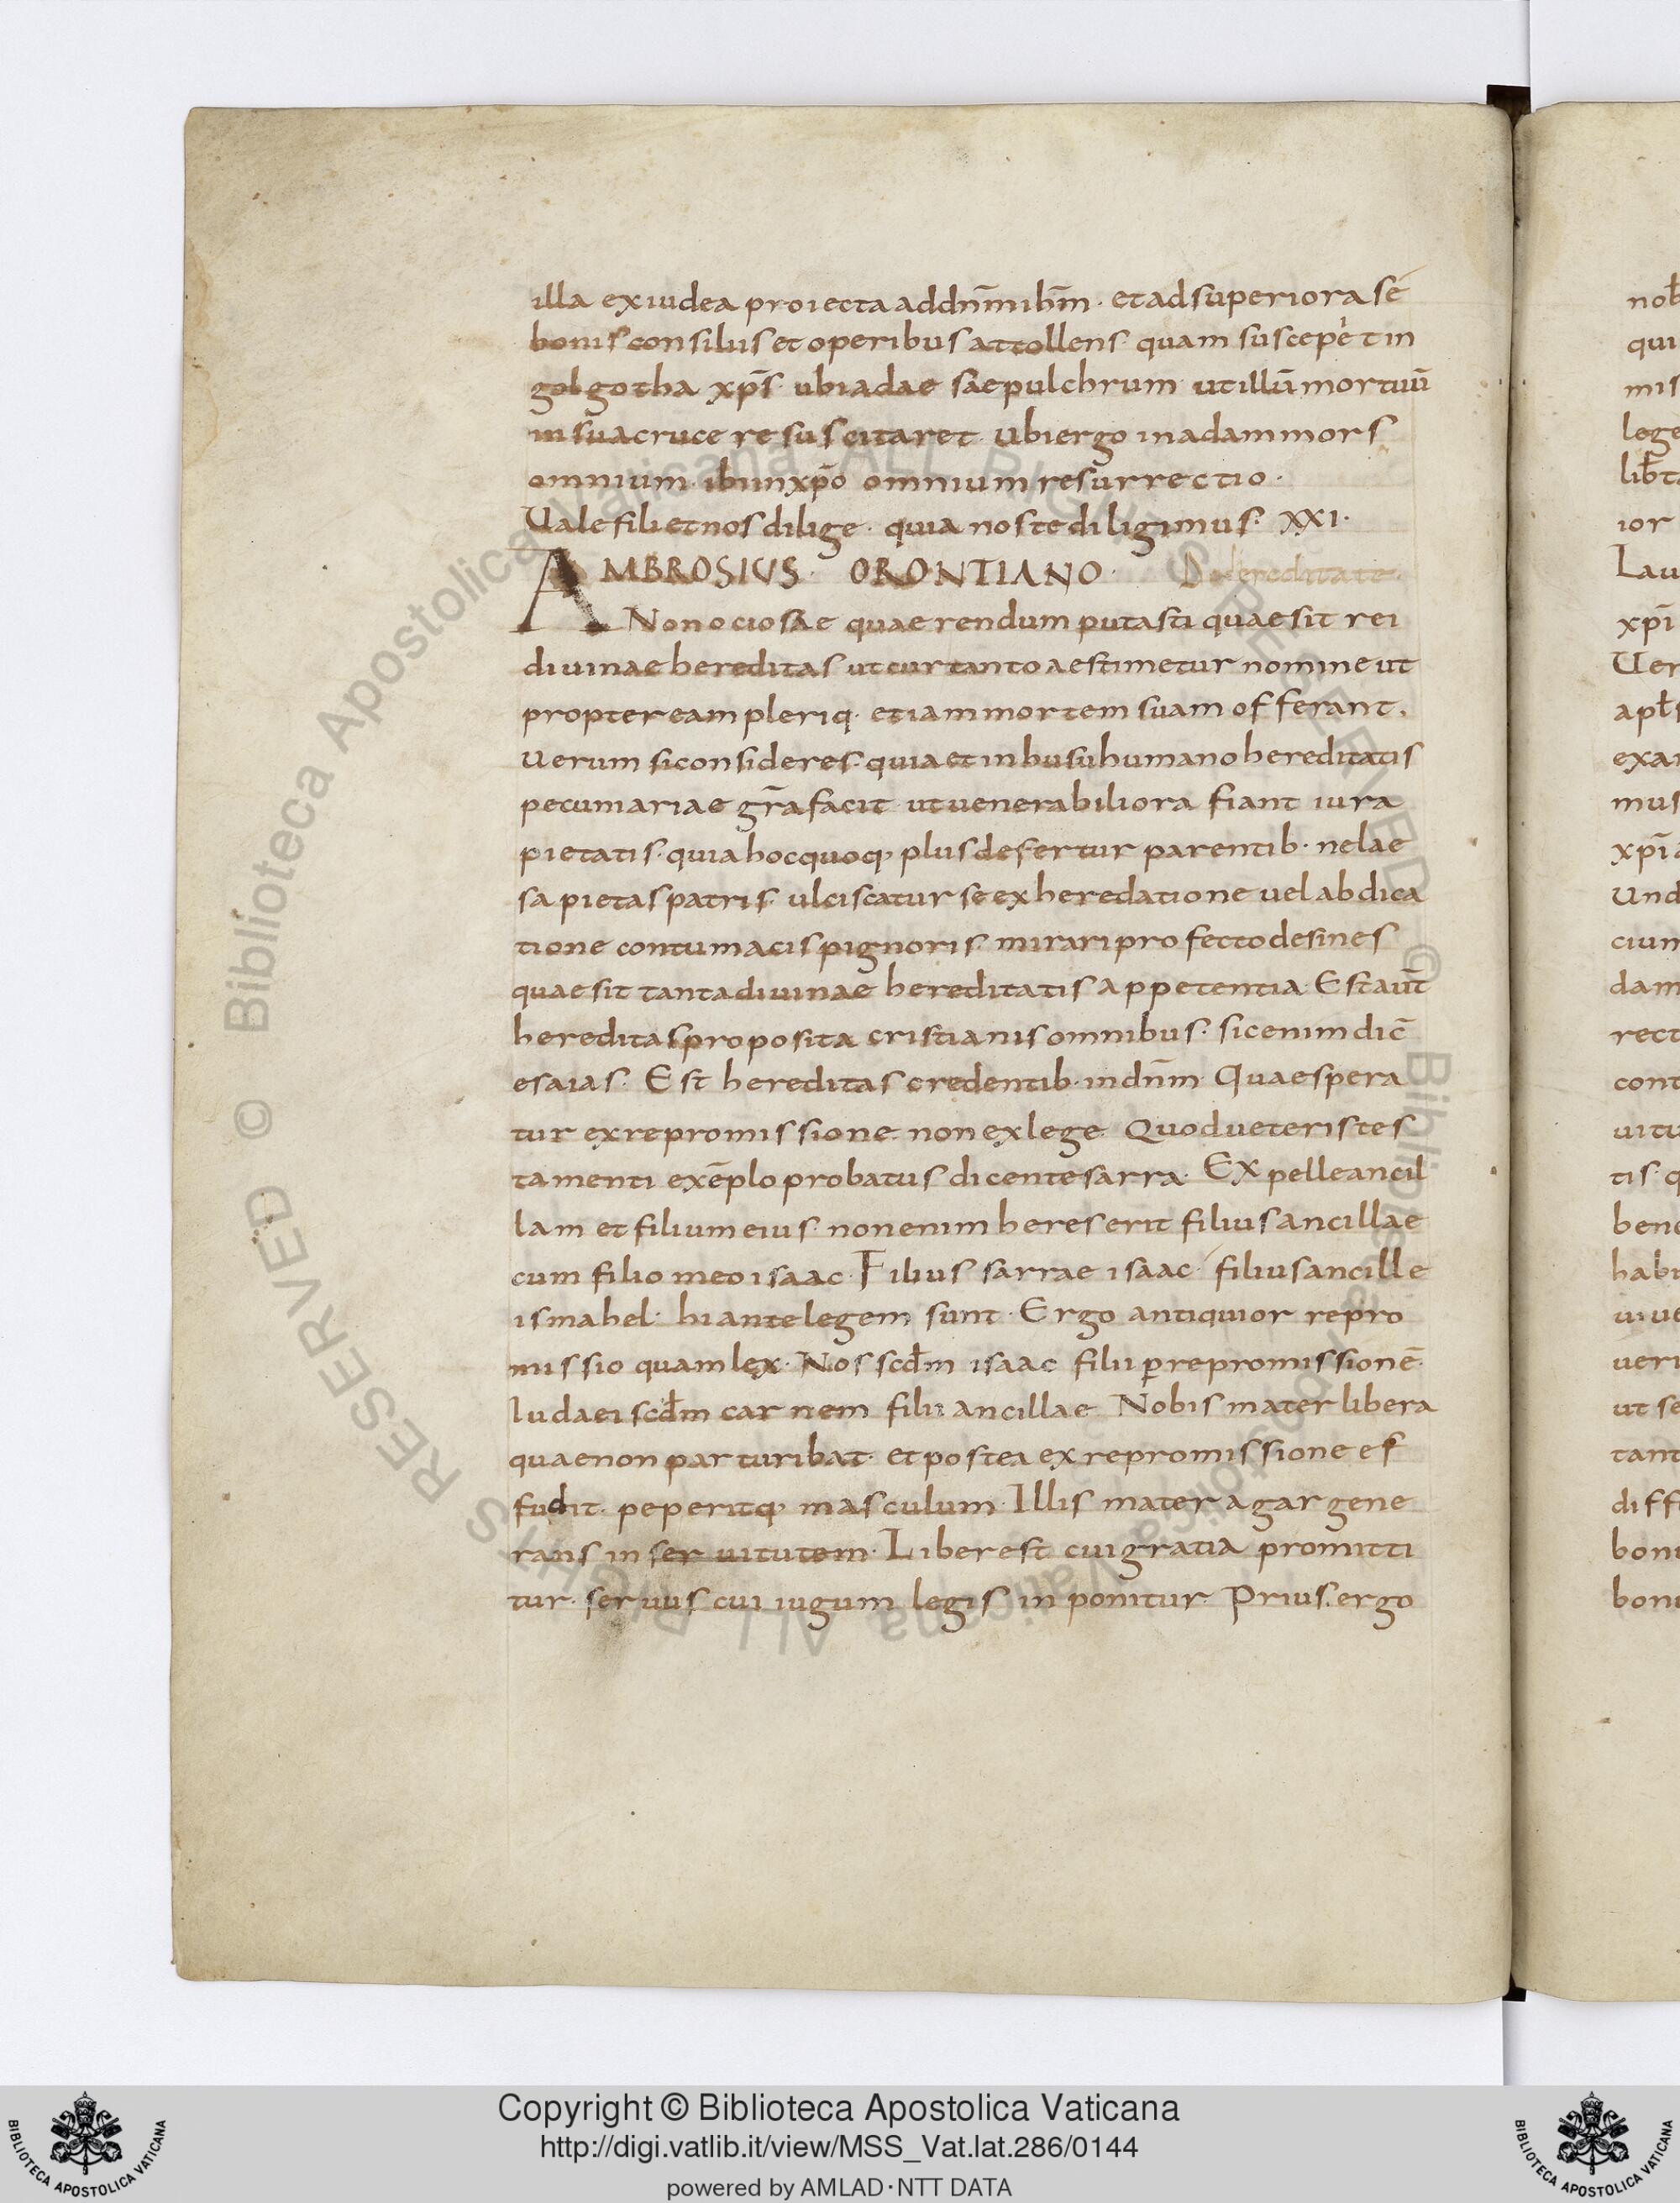 illa exiudea proiecta addn̄mihm̄. etadsuperiora se
bonisconsiliisetoperibus attollens. quam suscepe t in
golgotha xp̄s. ubiadae saepulchrum. utillū mortuū
insuacruce resuscitaret. Ubiergo inadammors
omnium. ibiinxp̄o omniumresurrectio.
Ualefilietnosdilige. quia nostediligimus. XXI.
AMBROSIUS. ORONTIANO. De hereditate.
Nonociosae quaerendum putasti quaesit rei
diuinaehereditas utcurtantoaestimetur nomineut
proptereampleriq. etiammortem suam offerant.
Uerum siconsideres. quiaetinhusuhumanohereditatis
pecuniariae grā facit. utuenerabiliora fiant iura
pietatis. quiahocquoq, plusdefertur parentib. nelae
sapietaspatris. ulciscatur seexheredatione uelabdica
tione contumacispignoris. mirariprofectodesines
quaesit tantadiuinae hereditatisappetentia. Estaut̄
hereditasproposita cristianisomnibus. sicenimdic̄
esaias. Est hereditas credentib. indn̄m. Quaespera
tur exrepromissione. nonexlege. Quodueteristes
tamenti exēplo probatus dicentesarra. Expelleancil
lam etfiliumeius. nonenimhereserit filiusancillae
cum filiomeoisaac. Filius sarrae isaac. filiusancille
ismahel. hiantelegem sunt. Ergo antiquior repro
missio quamlex. Nosscdm̄ isaac filii p̱repromissionē.
Iudaeiscdm̄ carnem filii ancillae. Nobismaterlibera
quaenonparturibat. etpostea exrepromissione ef
fudit. peperitq, masculum. Illis mater agar gene
rans inseruitutem. Liberest cuigratia promitti
tur. seruus cui iugum legis inponitur. Prius.ergo
Copyright © Biblioteca Apostolica Vaticana
http://digi.vatlib.it/view/MSS_Vat.lat.286/0144
powered by AMLAD·NTT DATA
BIBLIOTECA APOSTOLICA VATICANA
BIBLIOTECA APOSTOLICA VATICANA